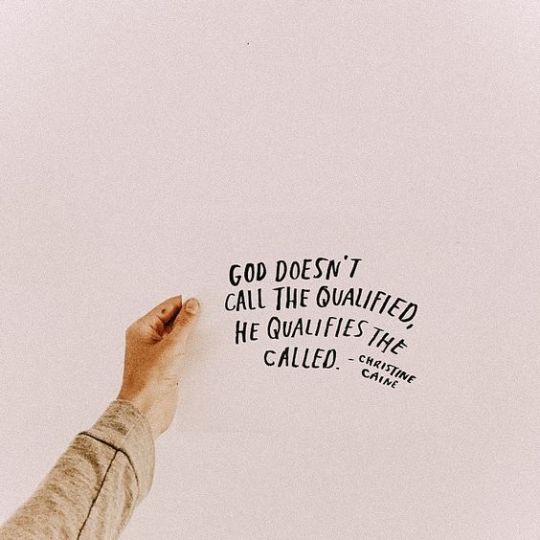 GOD DOESN'T
CALL THE QUALIFIED,
HE QUALIFIES THE
CALLED. - CHRISTINE
CAINE